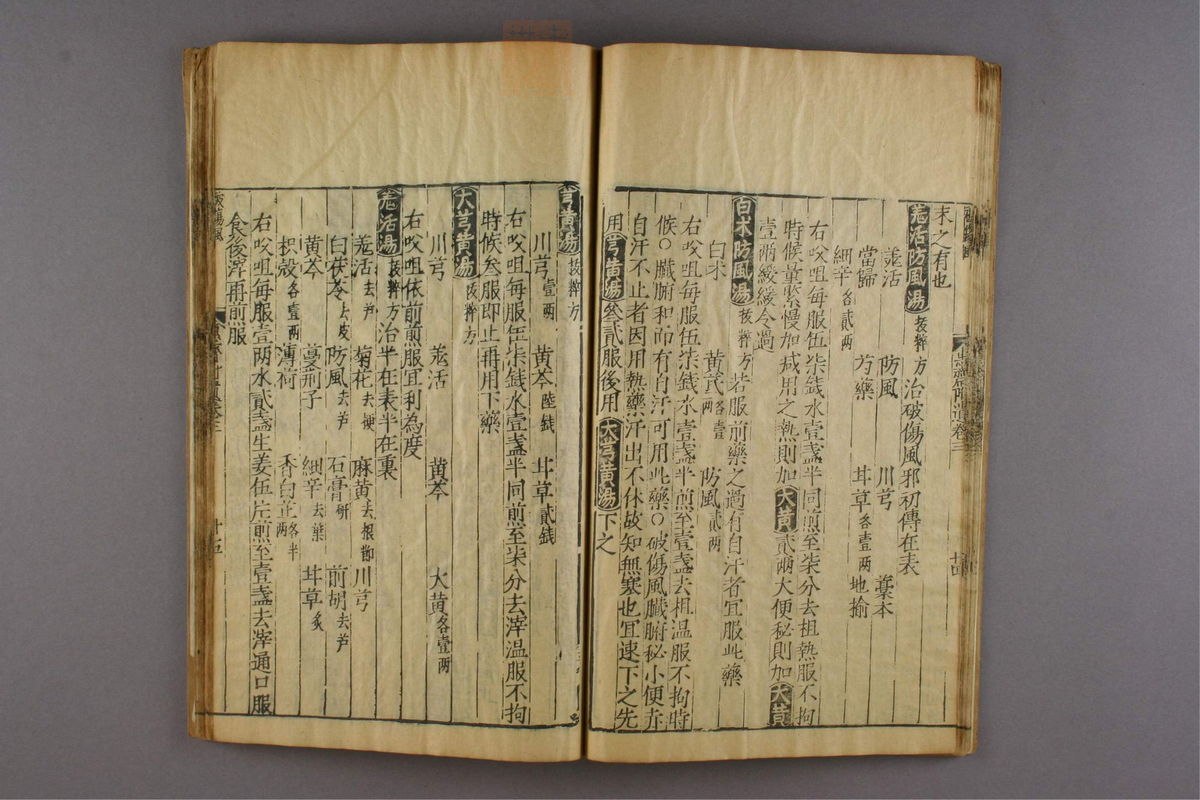 未之有也
羗活防風湯 拔粹方 治破傷風邪初傳在表
羗活 防風 川芎 藁本
當歸 芍藥 甘草各壹两 地榆
細辛各貳两
右㕮咀每服伍柒錢水壹盞半同煎至柒分去柤熱服不拘
時候量緊慢加减用之熱則加大黄貳两大便秘則加大黄
壹两緩緩令過
白术防風湯 拔粹方 若服前藥之過有自汗者宜服此藥
白术 黄芪各壹两 防風貳两
右㕮咀每服伍柒錢水壹盞半煎至壹盞去柤温服不拘時
候○臟腑和而有自汗可用此藥○破傷風臟腑秘小便赤
自汗不止者因用熱藥汗出不休故知無寒也宜速下之先
用芎黄湯叁貳服後用大芎黄湯下之
芎黄湯 拔粹方
川芎壹两 黄芩陸錢 甘草貳錢
右㕮咀每服伍柒錢水壹盞半同煎至柒分去滓温服不拘
時候叁服即止再用下藥
大芎黄湯 拔粹方
川芎 羗活 黄芩 大黄各壹两
右㕮咀依前煎服宜利為度
羗活湯 拔粹方 治半在表半在裏
羗活去芦 菊花去梗 麻黄去根節 川芎
白茯苓去皮 防風去芦 石膏研 前胡去芦
黄芩 蔓荊子 細辛去葉 甘草炙
枳殻各壹两 薄荷 香白芷各半两
右㕮咀每服壹两水貳盞生姜伍片煎至壹盞去滓通口服
食後滓再煎服
破傷風
十五